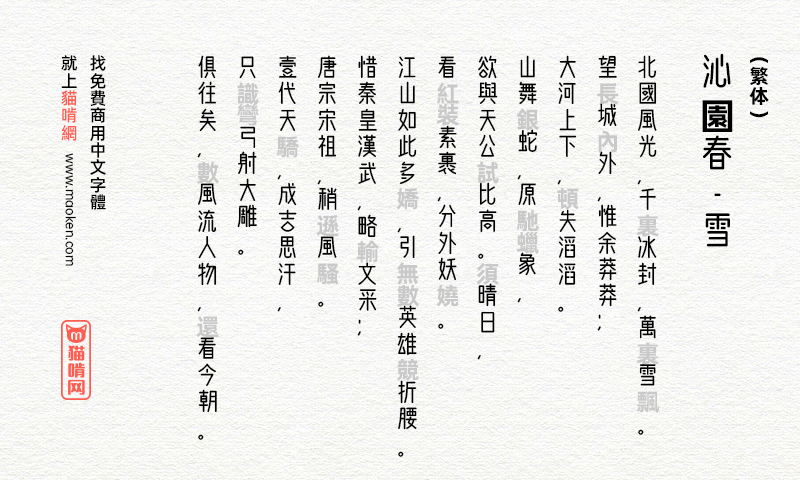 (繁体)
沁園春 - 雪
北國風光,千裏冰封,萬裏雪飄。
望長城內外,惟余莽莽;
大河上下,頓失滔滔。
山舞銀蛇,原馳蠟象,
欲與天公試比高。須晴日,
看紅裝素裹,分外妖嬈。
江山如此多嬌,引無數英雄競折腰。
惜秦皇漢武,略輸文采;
唐宗宋祖,稍遜風騷。
壹代天驕,成吉思汗,
只識彎弓射大雕。
俱往矣,數風流人物,還看今朝。
找免費商用中文字體
就上貓啃網 www.maoken.com
貓啃网